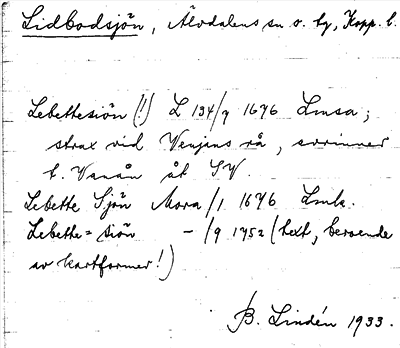 Lidbodsjön, Älvdalens sn o. tg, Kopp. l.
Lebettesiön (!) L 134/9 1696 Lmsa;
strax vid Venjans rå, avrinner
t. Vanån åt SV.
Lebette Sjön Mora /1 1696 Lmk.
Lebette=siön - /9 1752 (text, beroende
av kartformer!)
B. Lindén 1933.